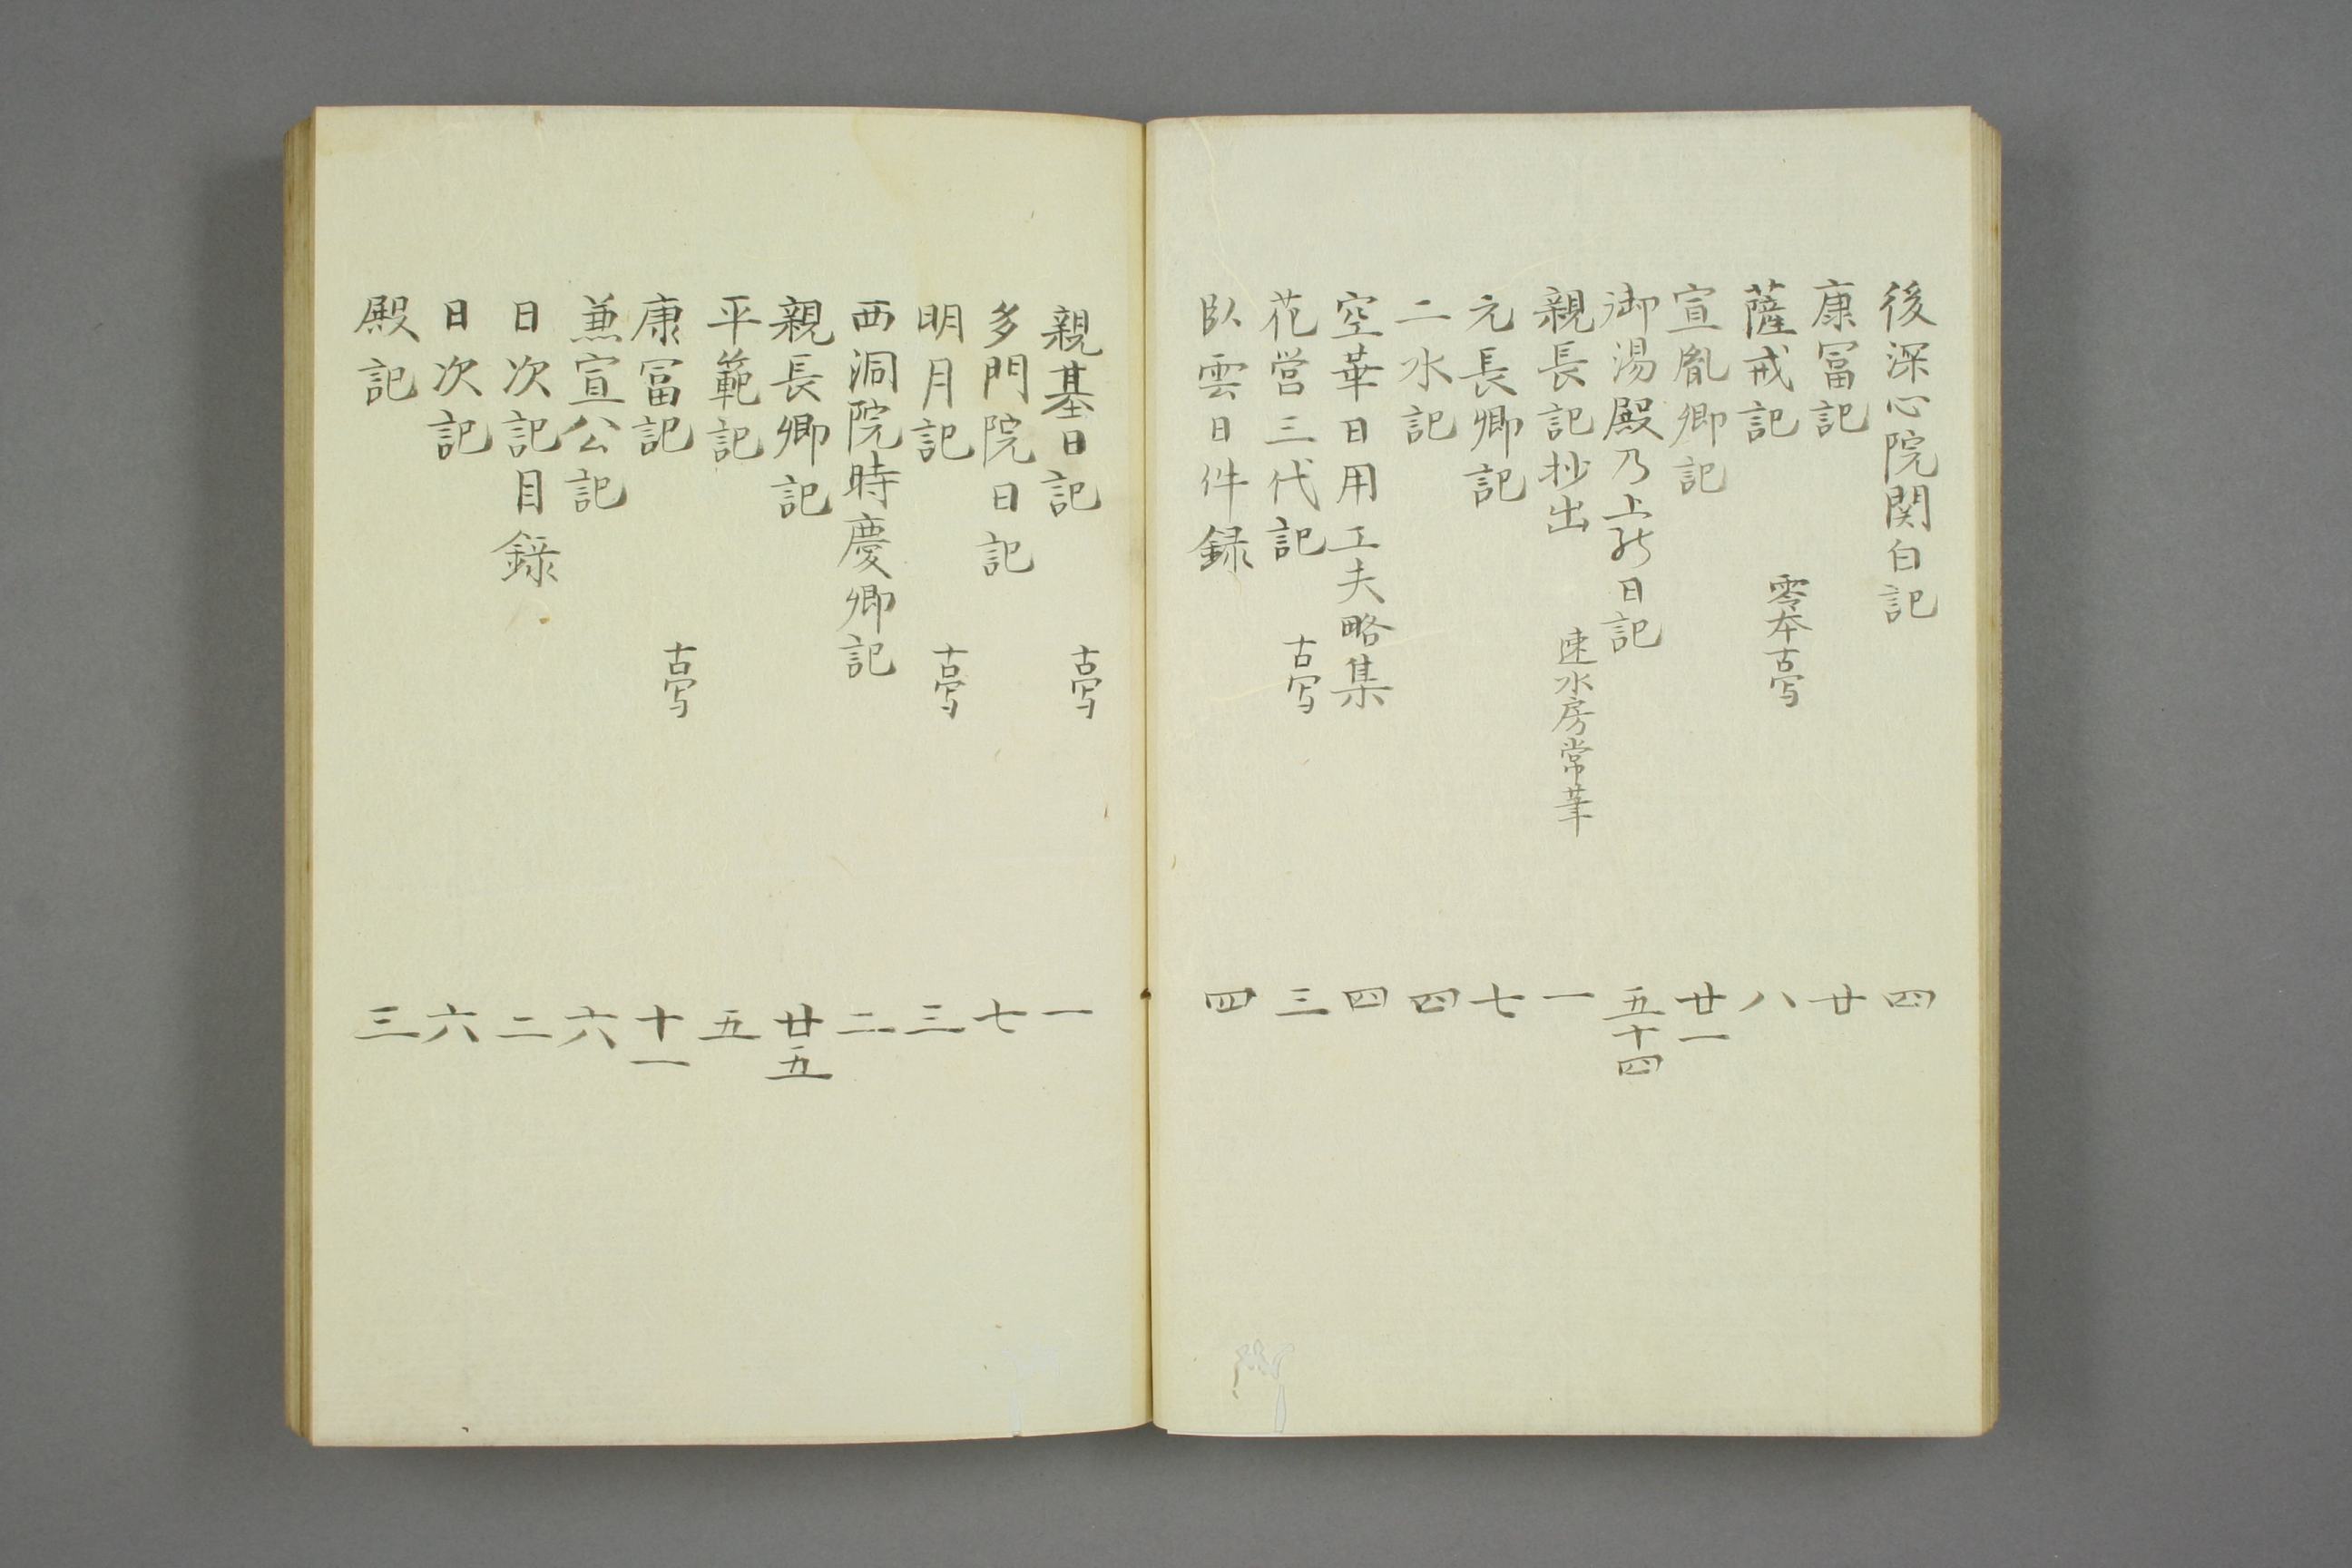 後深心院関白記 四
康冨記 廿
薩戒記 零本古写 八
宣胤卿記 廿一
御湯殿乃上の日記 五十四
親長記抄出 速水房常筆 一
元長卿記 七
二水記 四
空華日用工夫略集 四
花営三代記 古写 三
臥雲日件録 四
親基日記 古写 一
多門院日記 七
明月記 古写 三
西洞院時慶卿記 二
親長卿記 廿五
平範記 五
康冨記 古写 十一
兼宣公記 六
日次記目録 二
日次記 六
殿記 三